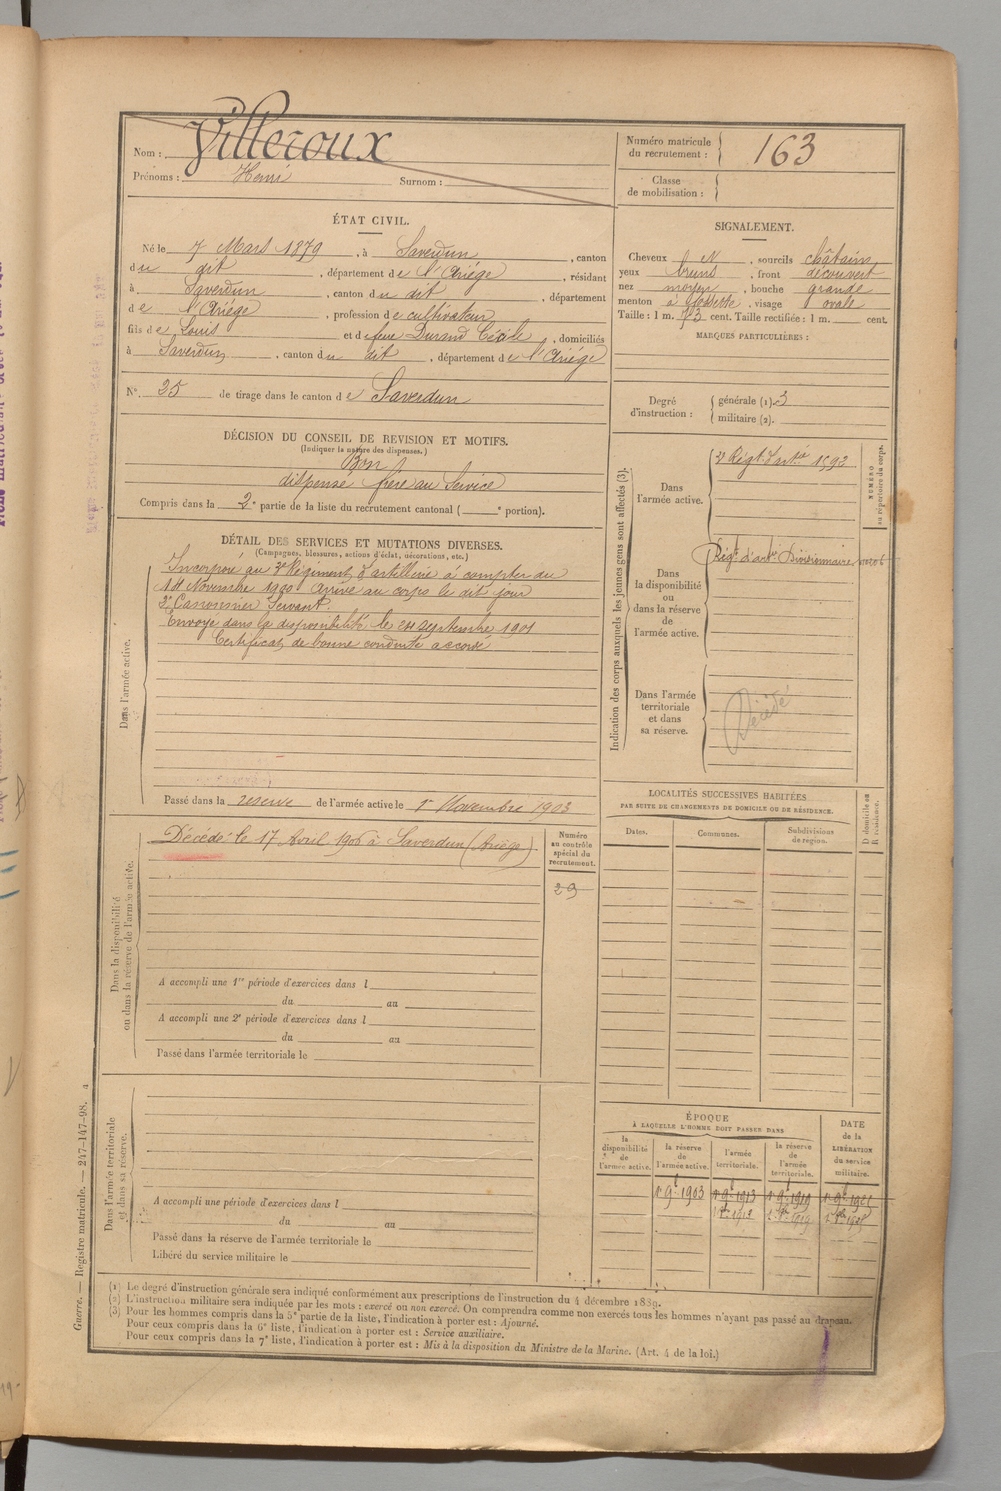 Nom : Villeroux
Prénoms : Henri Surnom :
Numéro matricule du recrutement : 163
Classe de mobilisation :
ÉTAT CIVIL.
Né le 7 Mars 1879, à Saverdun, canton
du dit, département de l'Ariège, résidant
à Saverdun, canton du dit, département
de l'Ariège, profession de cultivateur
fils de Louis et de feue Durand Cécile, domiciliés
à Saverdun, canton du dit, département de l'Ariège
N° 25 de tirage dans le canton de Saverdun
SIGNALEMENT.
Cheveux N, sourcils châtain
yeux bruns, front découvert
nez moyen, bouche grande
menton à fossette, visage ovale
Taille : 1 m. 73 cent. Taille rectifiée : 1 m. cent.
MARQUES PARTICULIÈRES :
Degré d'instruction : générale (1). 3
militaire (2).
DÉCISION DU CONSEIL DE REVISION ET MOTIFS.
(Indiquer la nature des dispenses.)
Bon
dispense frère au Service
Compris dans la 2e partie de la liste du recrutement cantonal ( e portion).
DÉTAIL DES SERVICES ET MUTATIONS DIVERSES.
(Campagnes, blessures, actions d'éclat, décorations, etc.)
Dans l'armée active.
Incorporé au 3e Régiment d'artillerie à compter du
14 Novembre 1900 arrivé au corps le dit jour
2e Canonnier Servant.
Envoyé dans la disponibilité le 21 septembre 1901
Certificat de bonne conduite accordé
Passé dans la réserve de l'armée active le 1er Novembre 1903
Indication des corps auxquels les jeunes gens sont affectés (3).
NUMÉRO au répertoire du corps.
Dans l'armée active.
3e Régt d'artie 1592
Dans la disponibilité ou dans la réserve de l'armée active.
Régt d'artie Divisionnaire
Dans l'armée territoriale et dans sa réserve.
Décédé
Dans la disponibilité ou dans la réserve de l'armée active.
Décédé le 17 Avril 1906 à Saverdun (Ariège)
Numéro au contrôle spécial du recrutement.
29
A accompli une 1re période d'exercices dans l
du au
A accompli une 2e période d'exercices dans l
du au
Passé dans l'armée territoriale le
LOCALITÉS SUCCESSIVES HABITÉES
PAR SUITE DE CHANGEMENTS DE DOMICILE OU DE RÉSIDENCE.
Dates. Communes. Subdivisions de région. D domicile ou R résidence.
Dans l'armée territoriale et dans sa réserve.
A accompli une période d'exercices dans l
du au
Passé dans la réserve de l'armée territoriale le
Libéré du service militaire le
ÉPOQUE
À LAQUELLE L'HOMME DOIT PASSER DANS
la disponibilité de l'armée active. la réserve de l'armée active. l'armée territoriale. la réserve de l'armée territoriale. DATE de la LIBÉRATION du service militaire.
1er 9bre 1903 1er 9bre 1913 1er 9bre 1919
(1) Le degré d'instruction générale sera indiqué conformément aux prescriptions de l'instruction du 4 décembre 1889.
(2) L'instruction militaire sera indiquée par les mots : exercé ou non exercé. On comprendra comme non exercés tous les hommes n'ayant pas passé au drapeau.
(3) Pour les hommes compris dans la 5e partie de la liste, l'indication à porter est : Ajourné.
Pour ceux compris dans la 6e liste, l'indication à porter est : Service auxiliaire.
Pour ceux compris dans la 7e liste, l'indication à porter est : Mis à la disposition du Ministre de la Marine. (Art. 4 de la loi.)
Guerre. — Registre matricule. — 247-147-98.